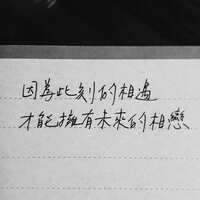 因為此刻的相遇
才能擁有未來的相戀